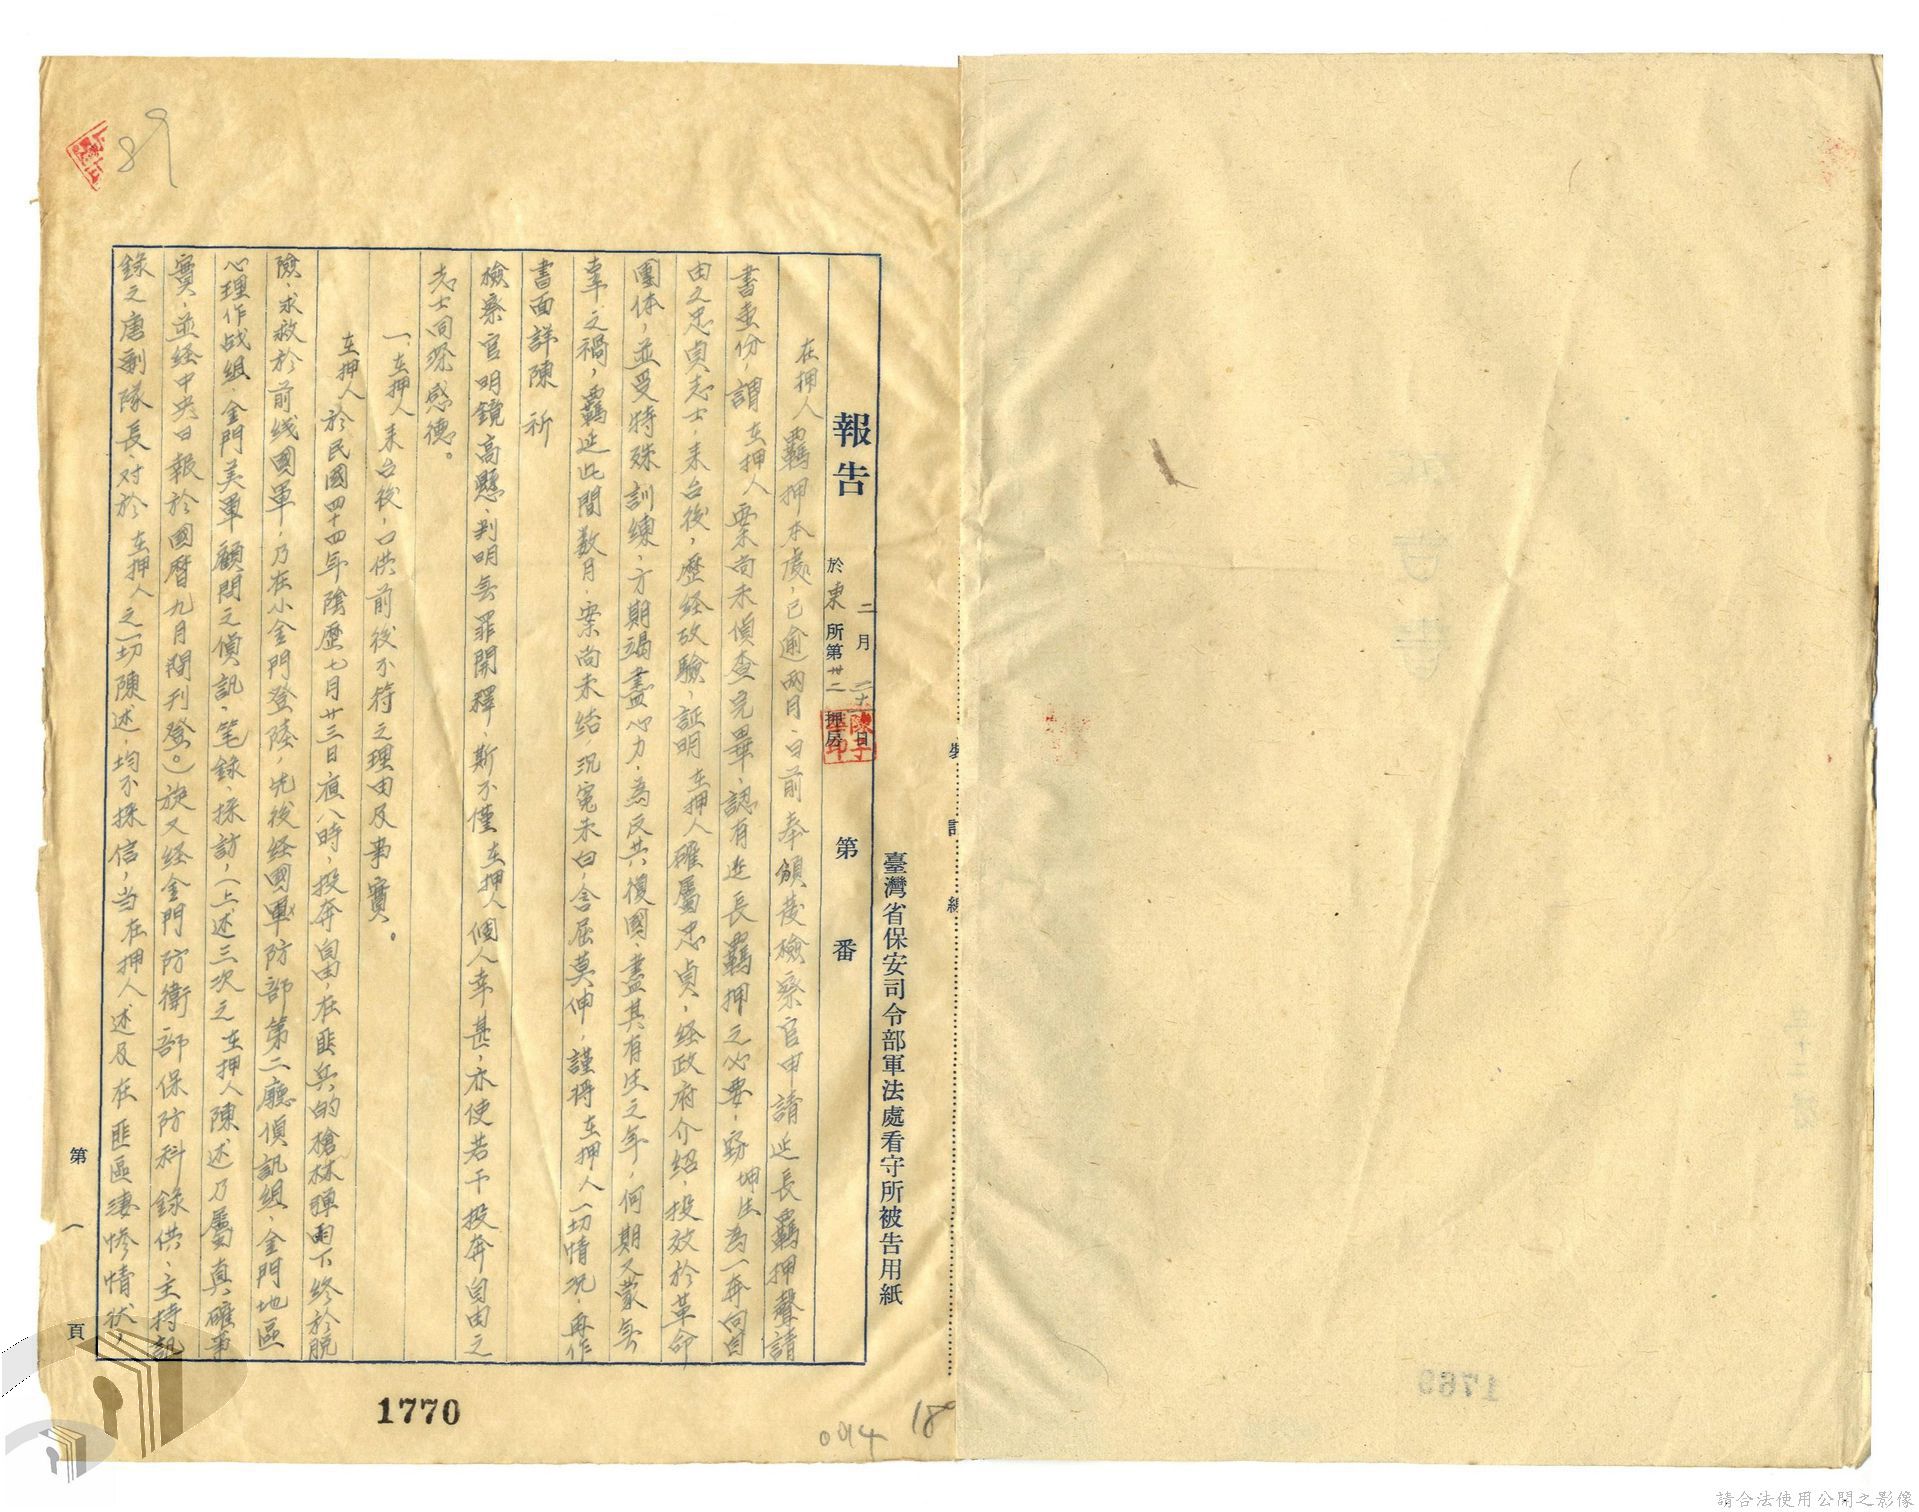 臺灣省保安司令部軍法處看守所被告用紙
報告
二月二十日
於東所第廿二押房
第 番
在押人羈押本處，已逾兩月，日前奉頒發檢察官申請延長羈押聲請
書壹份，謂在押人案尚未偵查完畢，認有延長羈押之必要，竊坤生為一奔向自
由之忠貞志士，来台後，歷經攷驗，証明在押人確屬忠貞，经政府介紹，投效於革命
團体，並受特殊訓練，方期竭盡心力，為反共復國，盡其有生之年，何期又蒙無
辜之禍，羈延此間数月，案尚未结，沉寃未白，含屈莫伸，謹將在押人一切情况，再作
書面詳陳 祈
檢察官明鏡高懸，判明無罪開釋，斯不僅在押人個人幸甚，亦使若干投奔自由之
志士同深感德。
一、在押人来台後，口供前後不符之理由及事實。
在押人於民國四十四年陰歷七月廿三日夜八時，投奔自由，在匪兵的槍林彈雨下終於脱
險，求救於前线國軍，乃在小金門登陸，先後经國軍防部第二廳偵訊組、金門地區
心理作战組、金門美軍顧問之偵訊、笔錄、採訪，（上述三次之在押人陳述乃屬真確事
實，並经中央日報於國曆九月間刊登。）旋又经金門防衛部保防科錄供，主持訊
錄之唐副隊長，对於在押人之一切陳述，均不採信，当在押人述及在匪區淒慘情状，
第一頁
1770
094
18
89
1769
請合法使用公開之影像